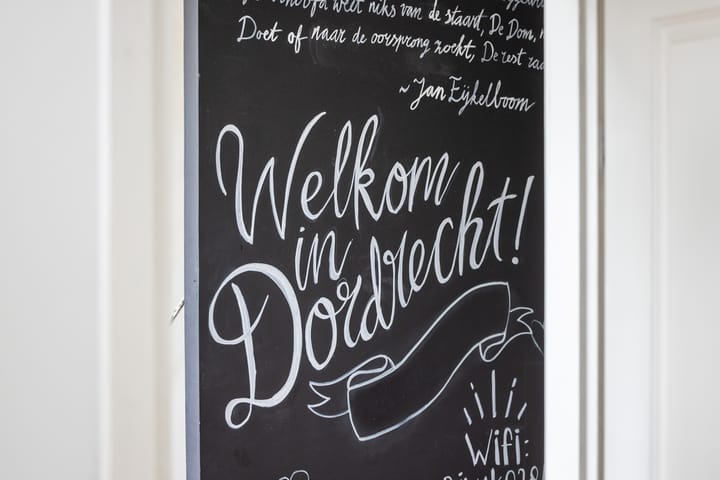 weet niks van de staart, De Dom,
Doet of naar de oorsprong zocht, De rest
~Jan Eijkelboom
Welkom
in
Dordrecht!
Wifi: